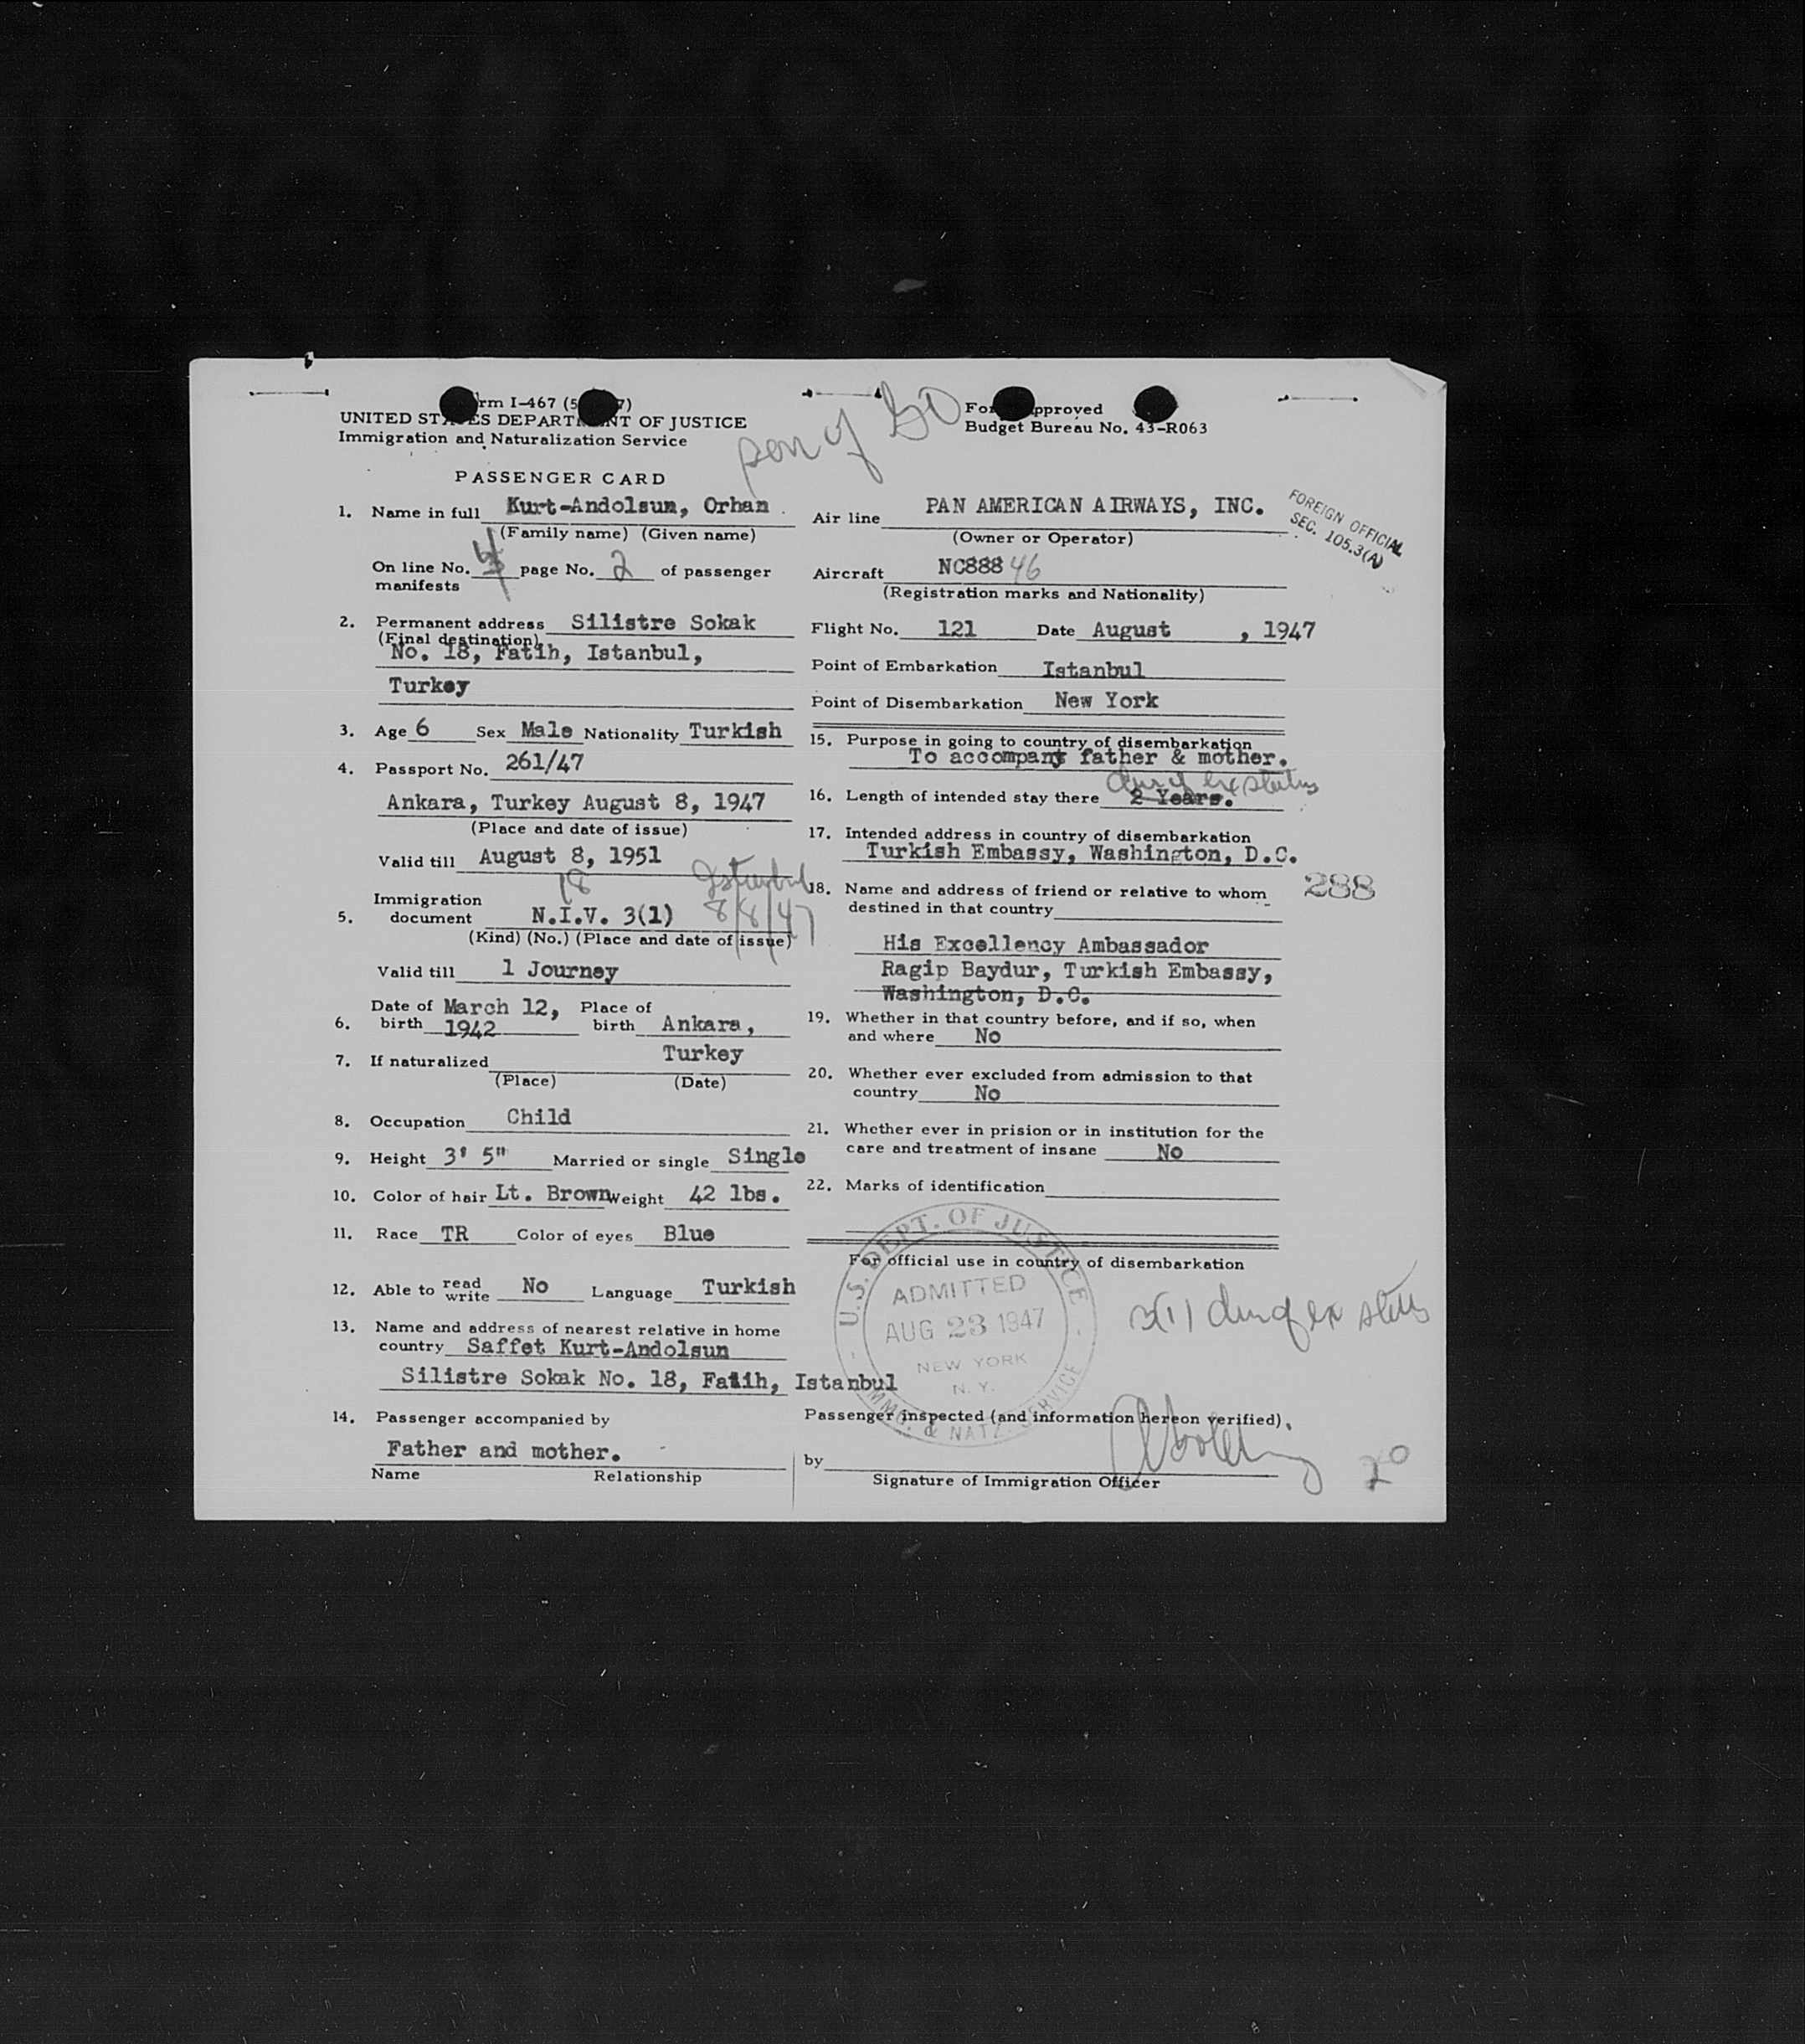 rm I-467 (5 7)
UNITED ST ES DEPARTM NT OF JUSTICE
Immigration and Naturalization Service
son of GO
For pproved
Budget Bureau No. 43-R063
PASSENGER CARD
1. Name in full Kurt-Andolsun, Orhan
(Family name) (Given name)
On line No. 4 page No. 2 of passenger
manifests
2. Permanent address Silistre Sokak
(Final destination)
No. 18, Fatih, Istanbul,
Turkey
3. Age 6 Sex Male Nationality Turkish
4. Passport No. 261/47
Ankara, Turkey August 8, 1947
(Place and date of issue)
Valid till August 8, 1951
18 Istanbul
Immigration
5. document N.I.V. 3(1) 8/8/47
(Kind) (No.) (Place and date of issue)
Valid till 1 Journey
Date of March 12, Place of
6. birth 1942 birth Ankara,
Turkey
7. If naturalized
(Place) (Date)
8. Occupation Child
9. Height 3' 5" Married or single Single
10. Color of hair Lt. Brown Weight 42 lbs.
11. Race TR Color of eyes Blue
12. Able to read write No Language Turkish
13. Name and address of nearest relative in home
country Saffet Kurt-Andolsun
Silistre Sokak No. 18, Fatih, Istanbul
14. Passenger accompanied by
Father and mother.
Name Relationship
Air line PAN AMERICAN AIRWAYS, INC.
(Owner or Operator)
FOREIGN OFFICIAL
SEC. 105.3(A)
Aircraft NC88846
(Registration marks and Nationality)
Flight No. 121 Date August , 1947
Point of Embarkation Istanbul
Point of Disembarkation New York
15. Purpose in going to country of disembarkation
To accompany father & mother.
dur of ex status
16. Length of intended stay there 2 Years.
17. Intended address in country of disembarkation
Turkish Embassy, Washington, D.C.
18. Name and address of friend or relative to whom
destined in that country
288
His Excellency Ambassador
Ragip Baydur, Turkish Embassy,
Washington, D.C.
19. Whether in that country before, and if so, when
and where No
20. Whether ever excluded from admission to that
country No
21. Whether ever in prision or in institution for the
care and treatment of insane No
22. Marks of identification
For official use in country of disembarkation
U.S. DEPT. OF JUSTICE
ADMITTED
AUG 23 1947
NEW YORK
N. Y.
IMMG. & NATZ. SERVICE
3(1) dur of ex status
Passenger inspected (and information hereon verified).
by
Signature of Immigration Officer
20